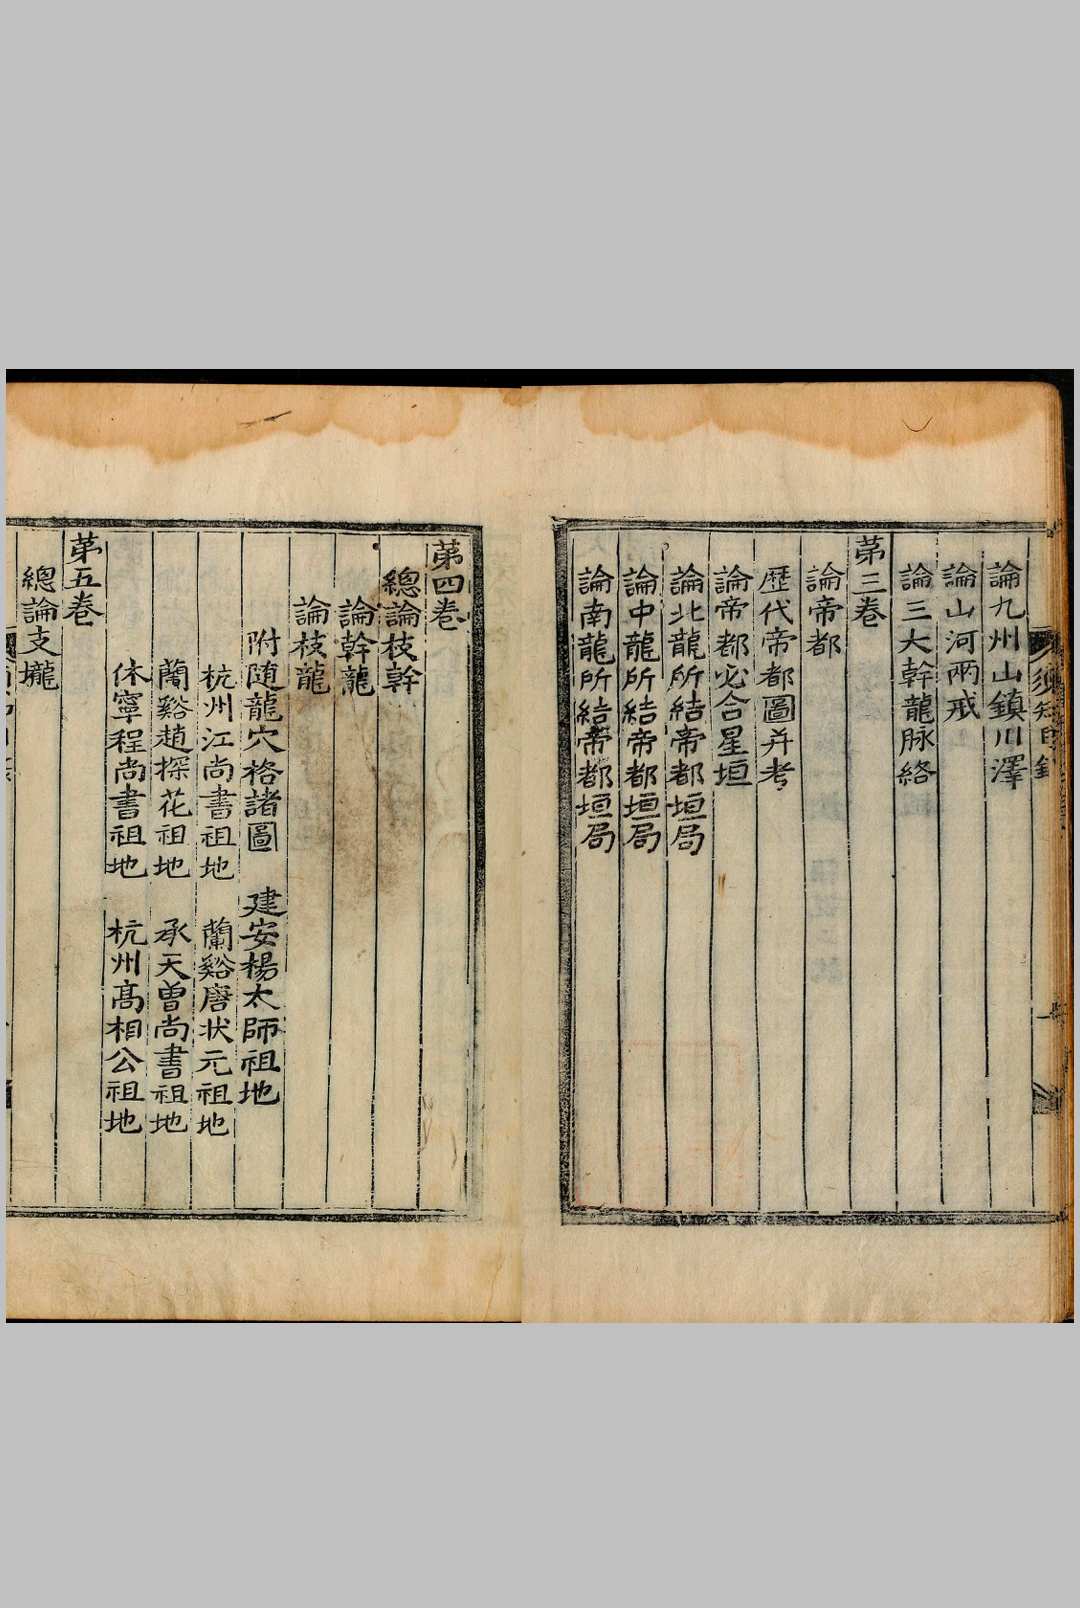 論九州山鎮川澤
論山河兩戒
論三大幹龍脉絡
第三卷
論帝都
歷代帝都圖并考
論帝都必合星垣
論北龍所結帝都垣局
論中龍所結帝都垣局
論南龍所結帝都垣局
第四卷
總論枝幹
論幹龍
論枝龍
附随龍穴格諸圖　建安楊太師祖地
杭州江尚書祖地　蘭谿唐状元祖地
蘭谿趙探花祖地　承天曽尚書祖地
休寧程尚書祖地　杭州髙相公祖地
第五卷
總論支壠